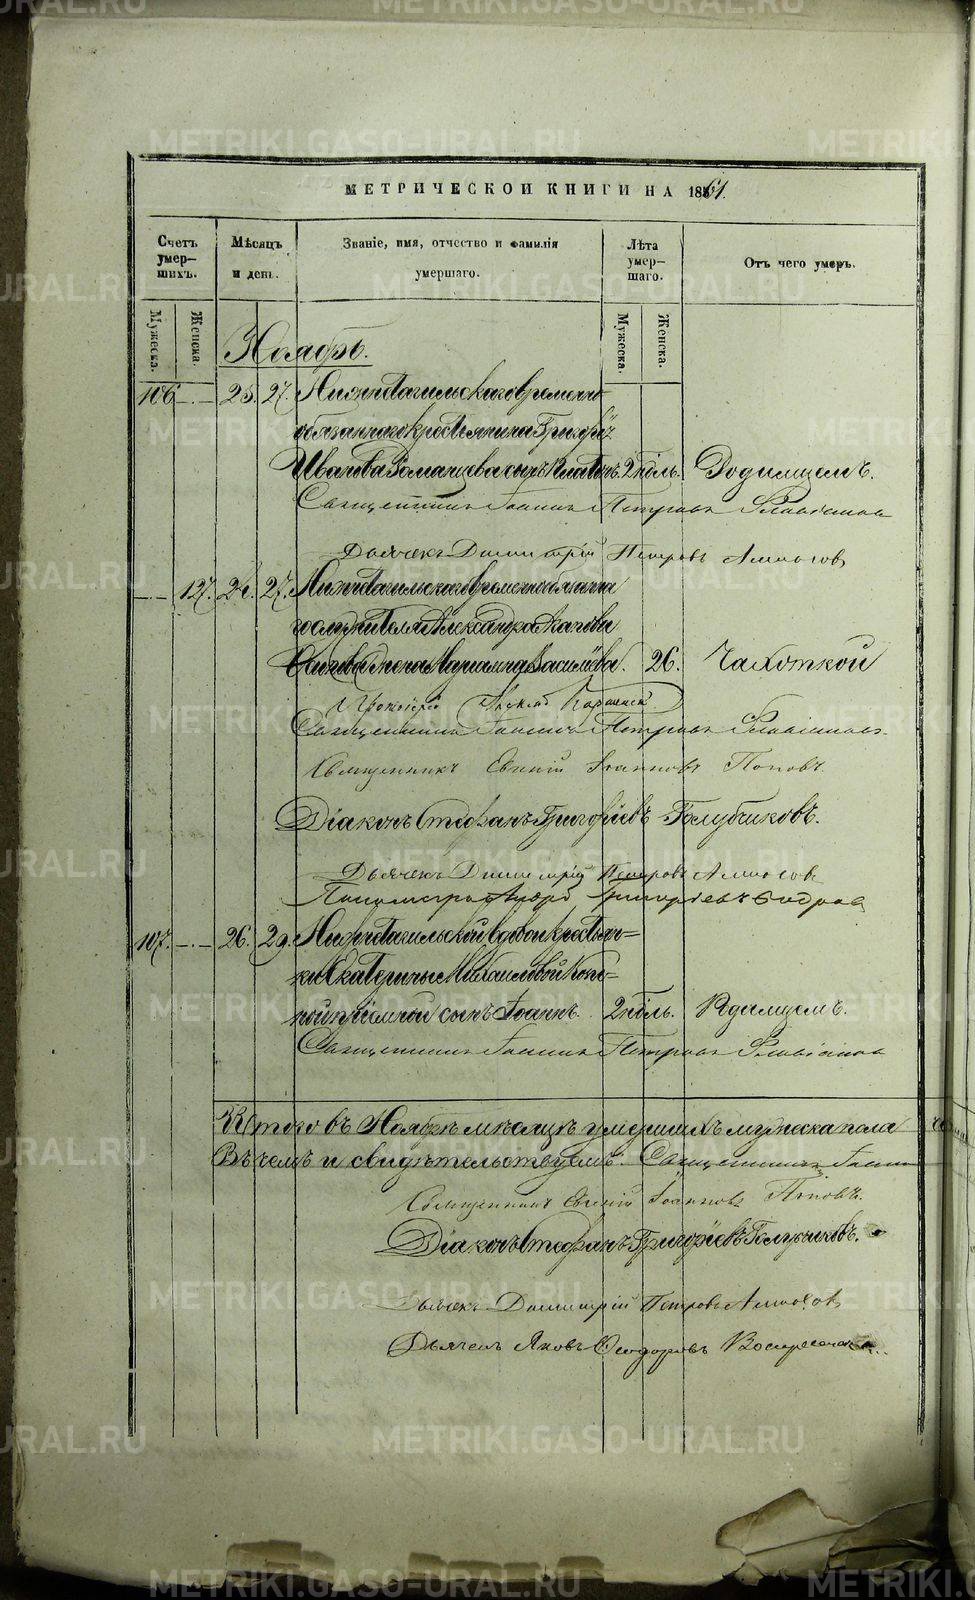 МЕТРИЧЕСКОЙ КНИГИ НА 1861.
Счетъ умер-шихъ.
Мѣсяцъ и день.
Званіе, имя, отчество и фамилія умершаго.
Лѣта умер-шаго.
Отъ чего умеръ.
Мужеска. Женска. Мужеска. Женска.
Ноябрь.
106 25. 27. Нижнетагильскаго временно-
обязаннаго крестьянина Григорія
Иванова Романцева сынъ Платонъ. 2 нѣдѣль. Родимцемъ.
Священникъ Іоаннъ Петровъ Флавіановъ
Дьячекъ Димитрій Петровъ Алмосов
127. 24. 27. Нижнетагильскаго временнообязаннаго
служителя Александра
жена Марианна Васильева. 26. Чахоткой
Протоіерей
Священникъ Іоаннъ Петровъ Флавіановъ.
Священникъ Евгеній Іоанновъ Поповъ
Діаконъ Стефанъ Григоріевъ Голубчиковъ.
Дьячекъ Димитрій Петровъ Алмосов
Пономарь Григорьевъ
107. 26. 29. Нижнетагильской вдовы крестьян=
ки Екатерины Михайловой
пріемной сынъ Іоаннъ. 2 нѣдѣль. Родимцемъ.
Священникъ Іоаннъ Петровъ Флавіановъ
Итого въ Ноябрѣ мѣсяцѣ умершихъ мужеска пола
Въ чемъ и свидѣтельствуемъ: Священникъ Іоаннъ
Священникъ Евгеній Іоанновъ Поповъ.
Діаконъ Стефанъ Григоріевъ Голубчиковъ.
Дьячекъ Димитрій Петровъ Алмосов
Дьячекъ Яковъ Феодоровъ Воскресенск
METRIKI.GASO-URAL.RU